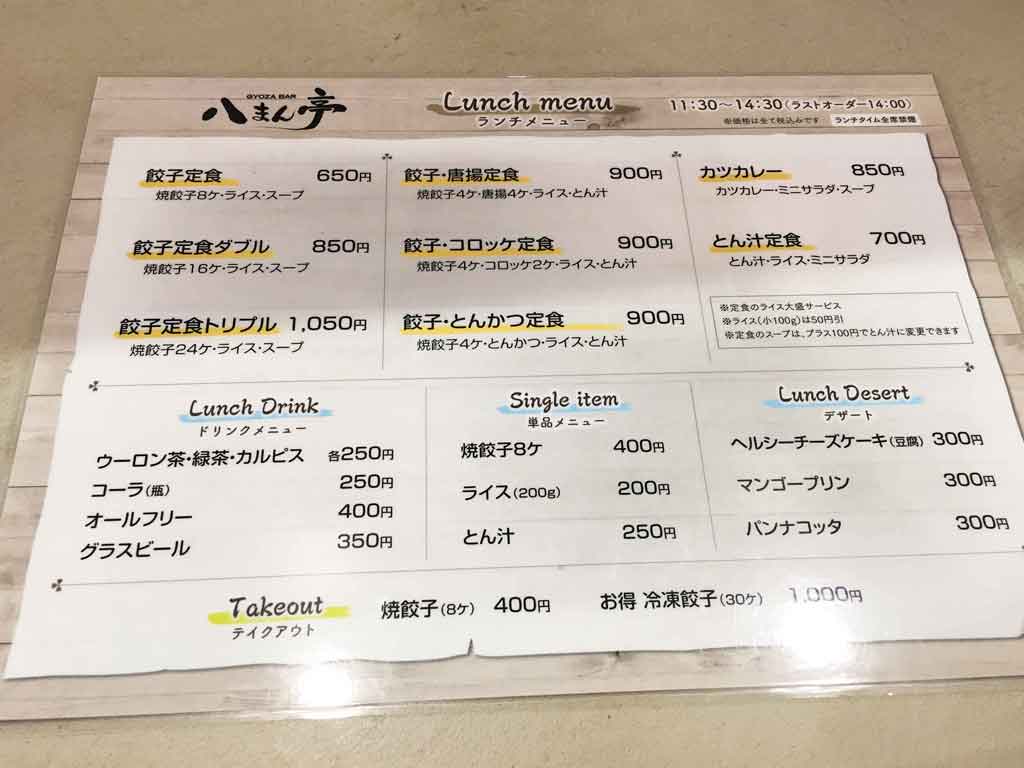 GYOZA BAR
八まん亭
Lunch menu
ランチメニュー
11:30〜14:30(ラストオーダー14:00)
※価格は全て税込みです ランチタイム全席禁煙
餃子定食 650円
焼餃子8ケ・ライス・スープ
餃子定食ダブル 850円
焼餃子16ケ・ライス・スープ
餃子定食トリプル 1,050円
焼餃子24ケ・ライス・スープ
餃子・唐揚定食 900円
焼餃子4ケ・唐揚4ケ・ライス・とん汁
餃子・コロッケ定食 900円
焼餃子4ケ・コロッケ2ケ・ライス・とん汁
餃子・とんかつ定食 900円
焼餃子4ケ・とんかつ・ライス・とん汁
カツカレー 850円
カツカレー・ミニサラダ・スープ
とん汁定食 700円
とん汁・ライス・ミニサラダ
※定食のライス大盛サービス
※ライス(小100g)は50円引
※定食のスープは、プラス100円でとん汁に変更できます
Lunch Drink
ドリンクメニュー
ウーロン茶・緑茶・カルピス 各250円
コーラ(瓶) 250円
オールフリー 400円
グラスビール 350円
Single item
単品メニュー
焼餃子8ケ 400円
ライス(200g) 200円
とん汁 250円
Lunch Desert
デザート
ヘルシーチーズケーキ(豆腐) 300円
マンゴープリン 300円
パンナコッタ 300円
Takeout
テイクアウト
焼餃子(8ケ) 400円
お得 冷凍餃子(30ケ) 1,000円